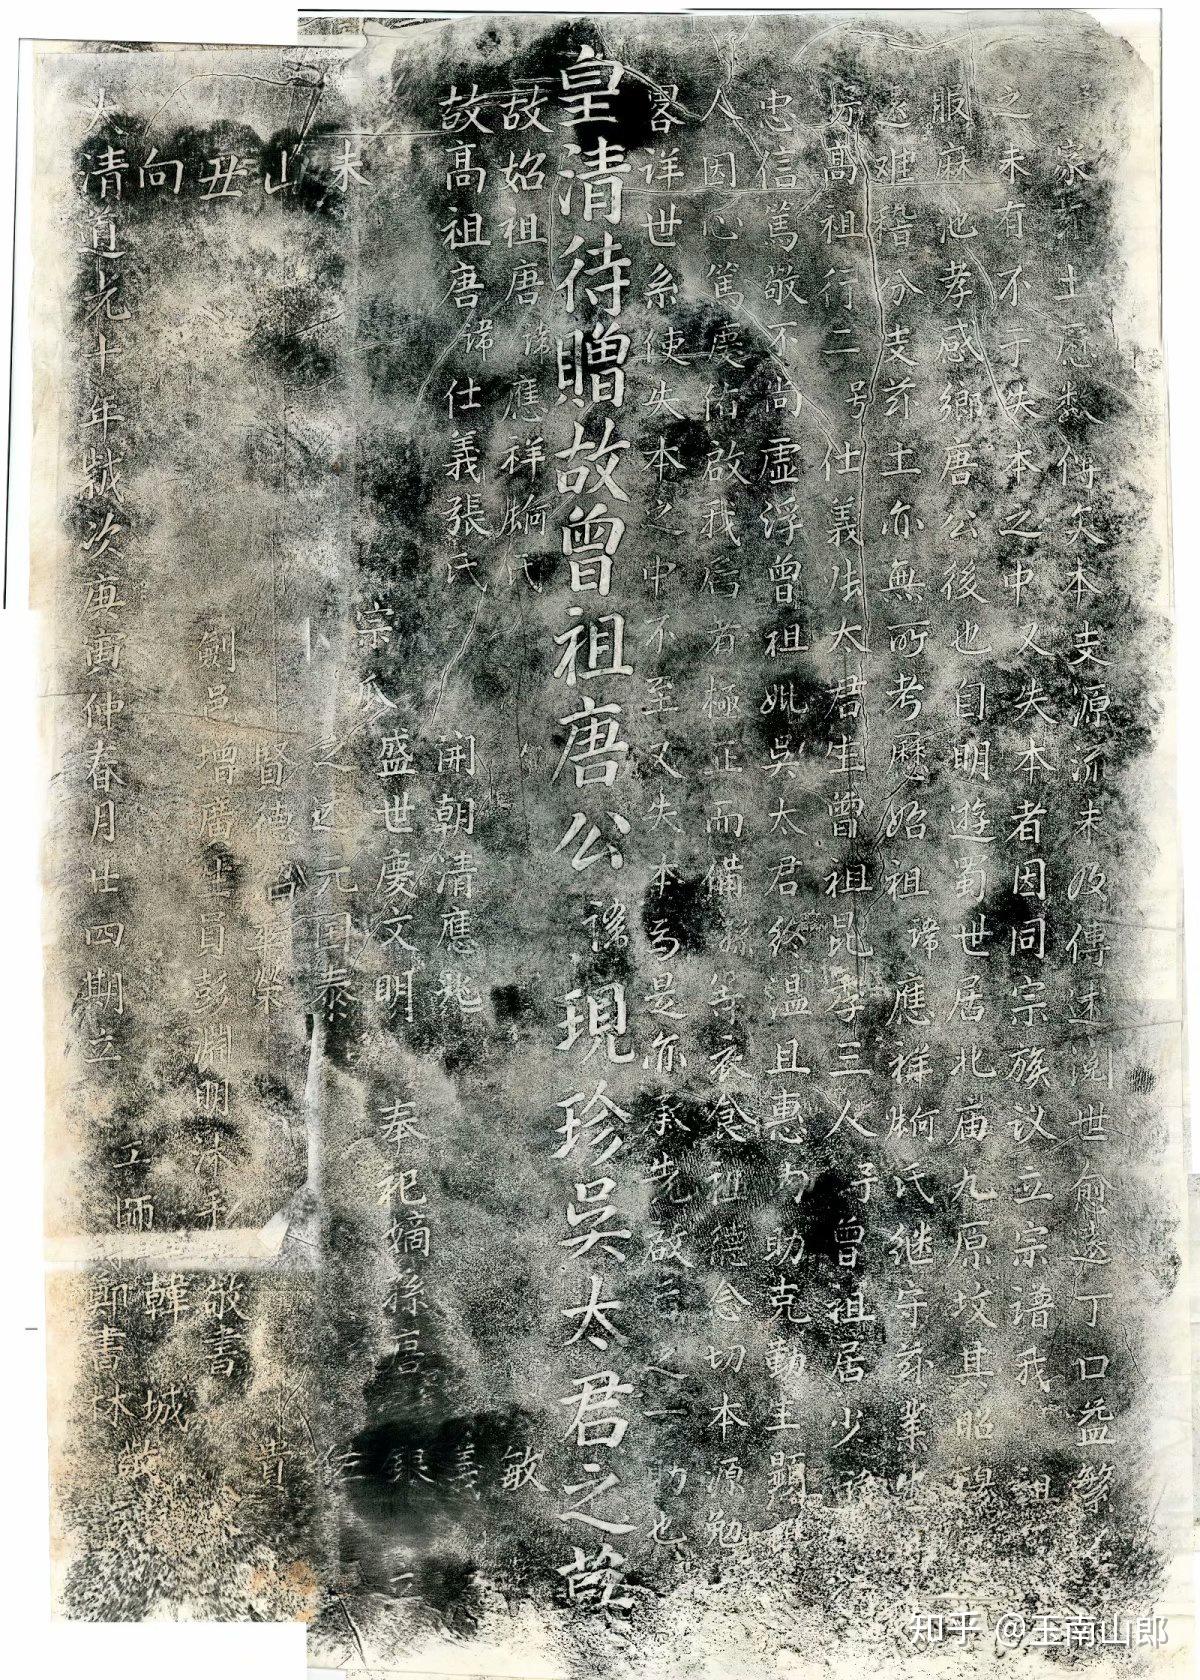 家 土 數傳矣本支源流未及傳述閱世愈遠丁口益繁
之未有不于失本之中又失本者因同宗族议立宗譜我 祖
服麻池孝感鄉唐公後也自明遊蜀世居北庙九原坟其昭穆
遂難稽分支茅土亦無所考歷始祖諱應祥 氏継守茅業生
房高祖行二号仕義 太君生曾祖昆季三人 子曾祖居少諱
忠信篤敬不尚虛浮曾祖妣吳太君終溫且惠内助克勤生顯
人因心篤慶佑啟我后者極正而備孫等衣食祖德念切本源勉
畧详世系使失本之中不至又失本焉是亦承先啟 之一助也
皇清待贈故曾祖唐公諱現珍吳太君之墓
故始祖唐諱應祥 氏
故高祖唐諱仕義張氏
開朝清應兆
宗 盛世慶文明
之 元国泰
賢德 華榮
奉祀嫡孫唐
敏
義
銀
仕
貴
立
未
山
丑
向
劍邑增廣生員彭淵明沐手敬書
工師 韓城
鄭書林 敬
大清道光十年歲次庚寅仲春月廿四期立
知乎 @玉南山郎